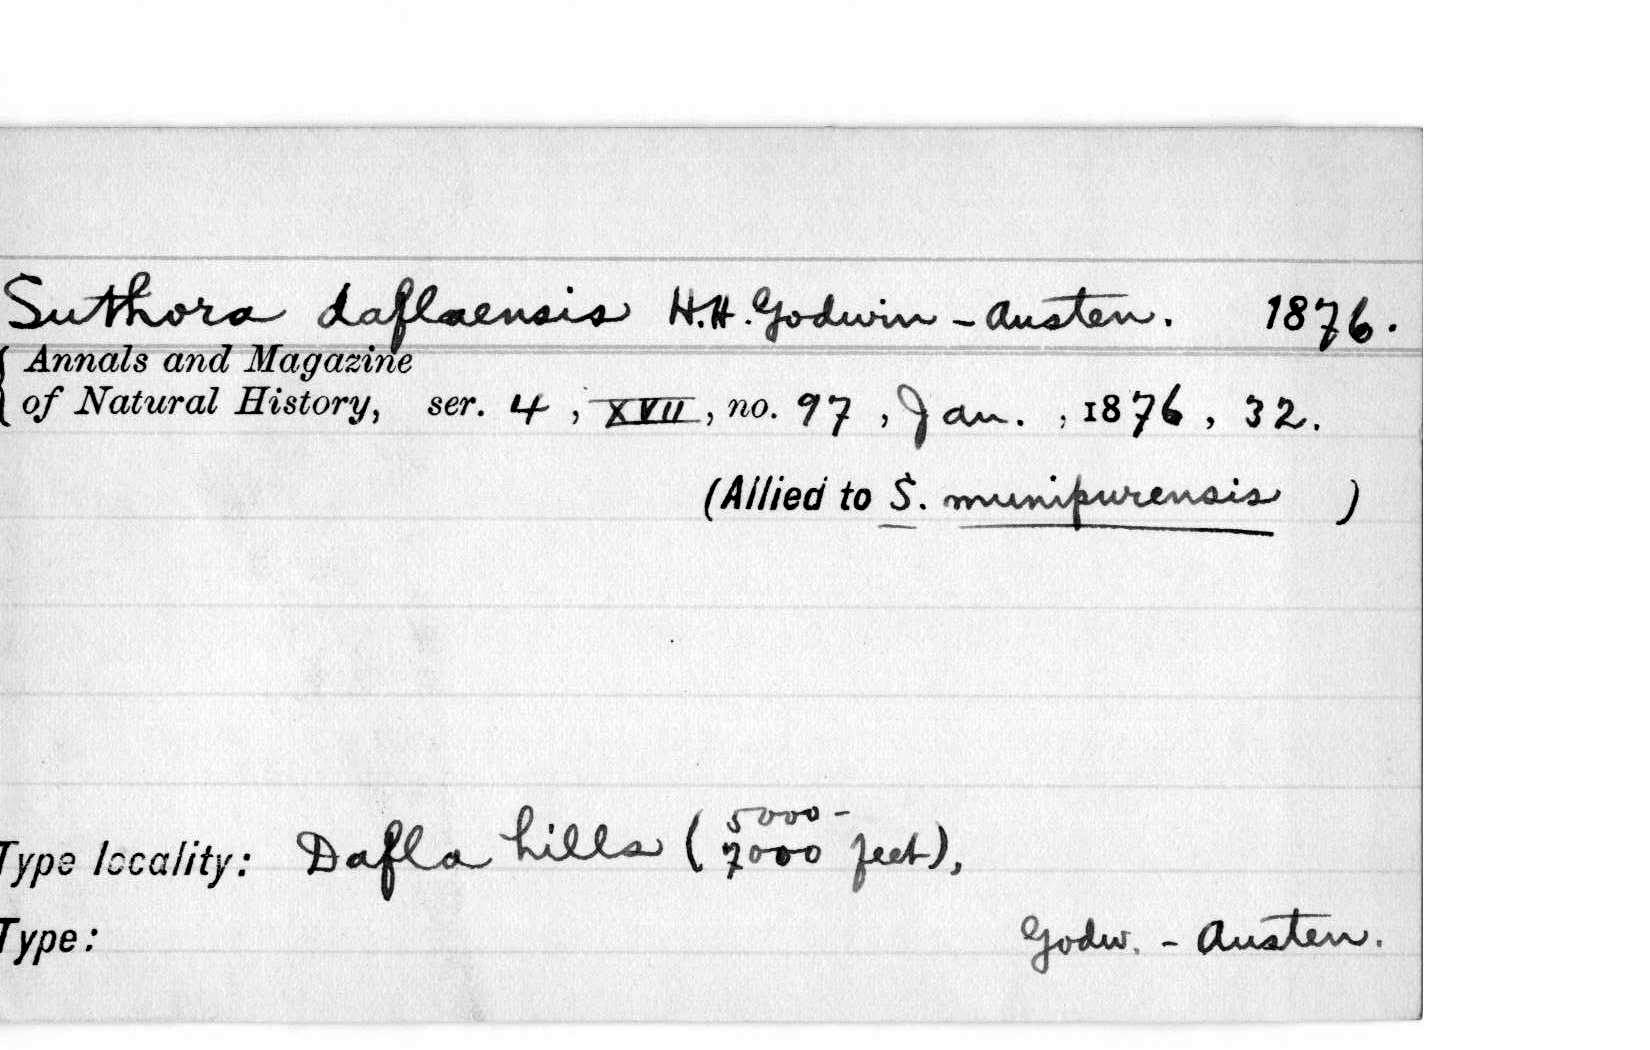 Suthora daflaensis H.H. Godwin-Austen. 1876.
Annals and Magazine
of Natural History, ser. 4, XVII, no. 97, Jan., 1876, 32.
(Allied to S. munipurensis )
Type locality: Dafla hills (5000-
7000 feet),
Type: Godw. - Austen.